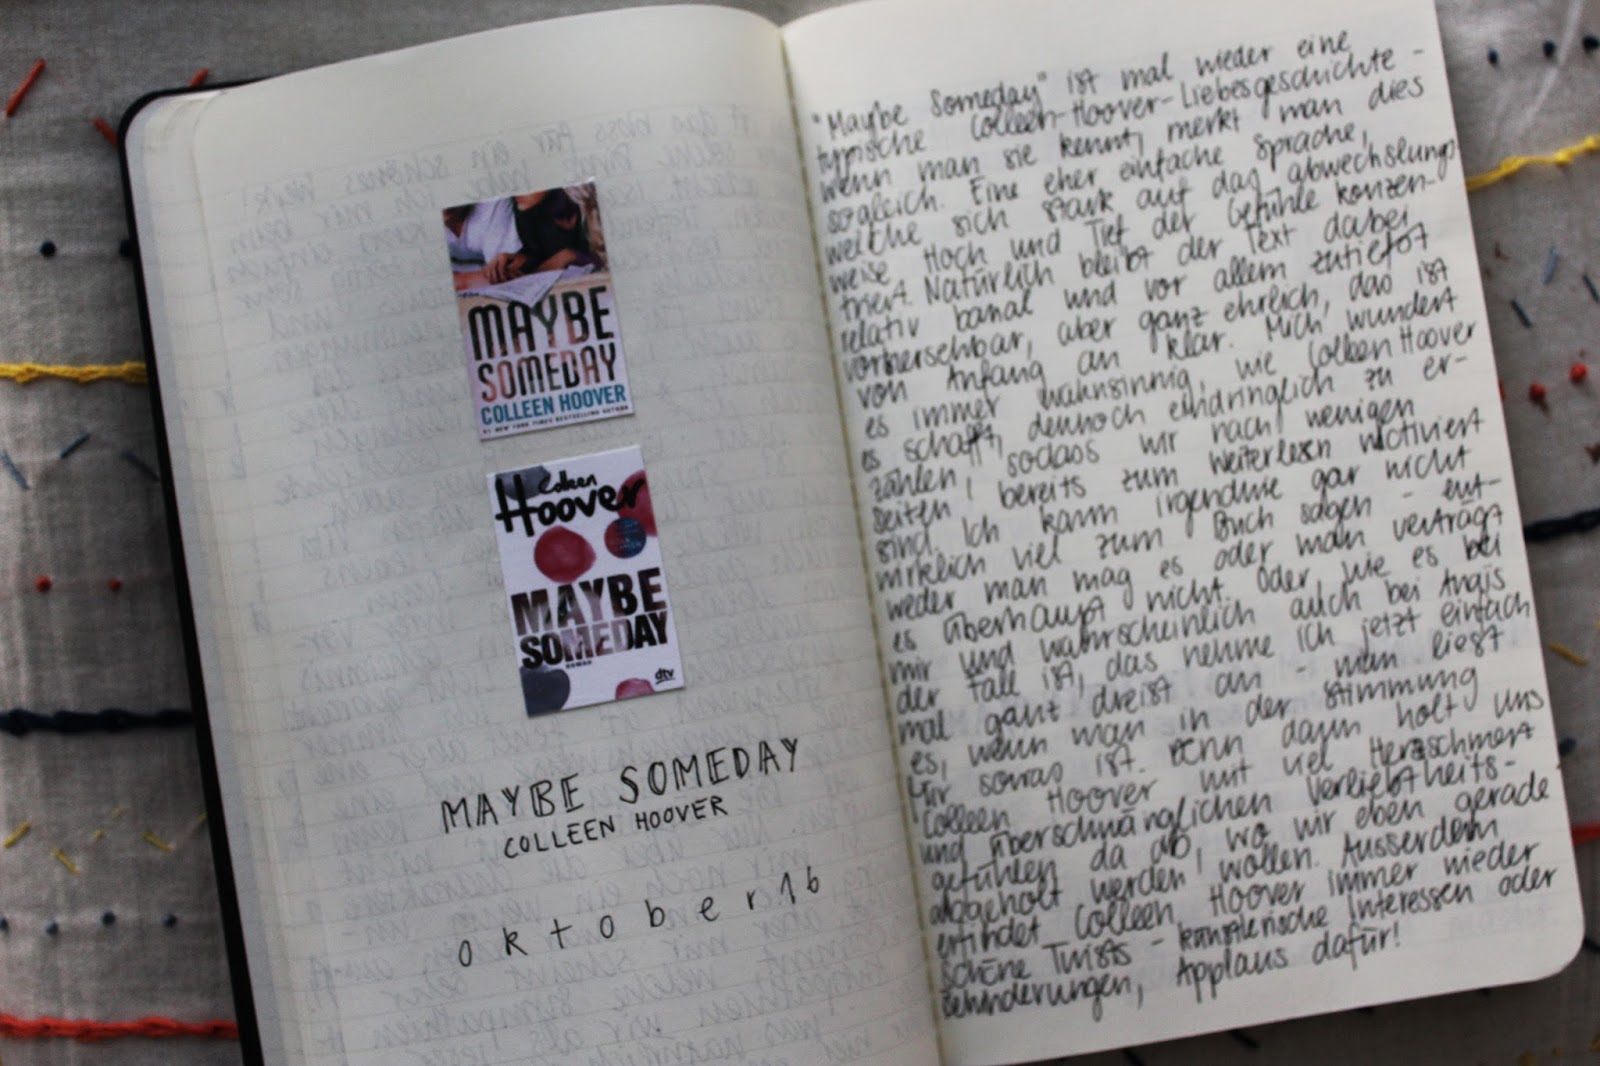 MAYBE
SOMEDAY
COLLEEN HOOVER
#1 NEW YORK TIMES BESTSELLING AUTHOR
Colleen
Hoover
MAYBE
SOMEDAY
ROMAN
dtv
MAYBE SOMEDAY
COLLEEN HOOVER
oktober 16
"Maybe Someday" ist mal wieder eine
typische Colleen-Hoover-Liebesgeschichte -
wenn man sie kennt, merkt man dies
sogleich. Eine eher einfache Sprache,
welche sich stark auf das abwechslungs-
weise Hoch und Tief der Gefühle konzen-
triert. Natürlich bleibt der Text dabei
relativ banal und vor allem zutiefst
vorhersehbar, aber ganz ehrlich, das ist
von Anfang an klar. Mich wundert
es immer wahnsinnig, wie Colleen Hoover
es schafft, dennoch eindringlich zu er-
zählen, sodass wir nach wenigen
Seiten bereits zum Weiterlesen motiviert
sind. Ich kann irgendwie gar nicht
wirklich viel zum Buch sagen - ent-
weder man mag es oder man verträgt
es überhaupt nicht. Oder, wie es bei
mir und wahrscheinlich auch bei Anaïs
der Fall ist, das nehme ich jetzt einfach
mal ganz dreist an - man liest
es, wenn man in der Stimmung
für sowas ist. Denn dann holt uns
Colleen Hoover mit viel Herzschmerz
und überschwänglichen Verliebtheits-
gefühlen da ab, wo wir eben gerade
abgeholt werden wollen. Ausserdem
erfindet Colleen Hoover immer wieder
schöne Twists - künstlerische Interessen oder
Behinderungen, Applaus dafür!